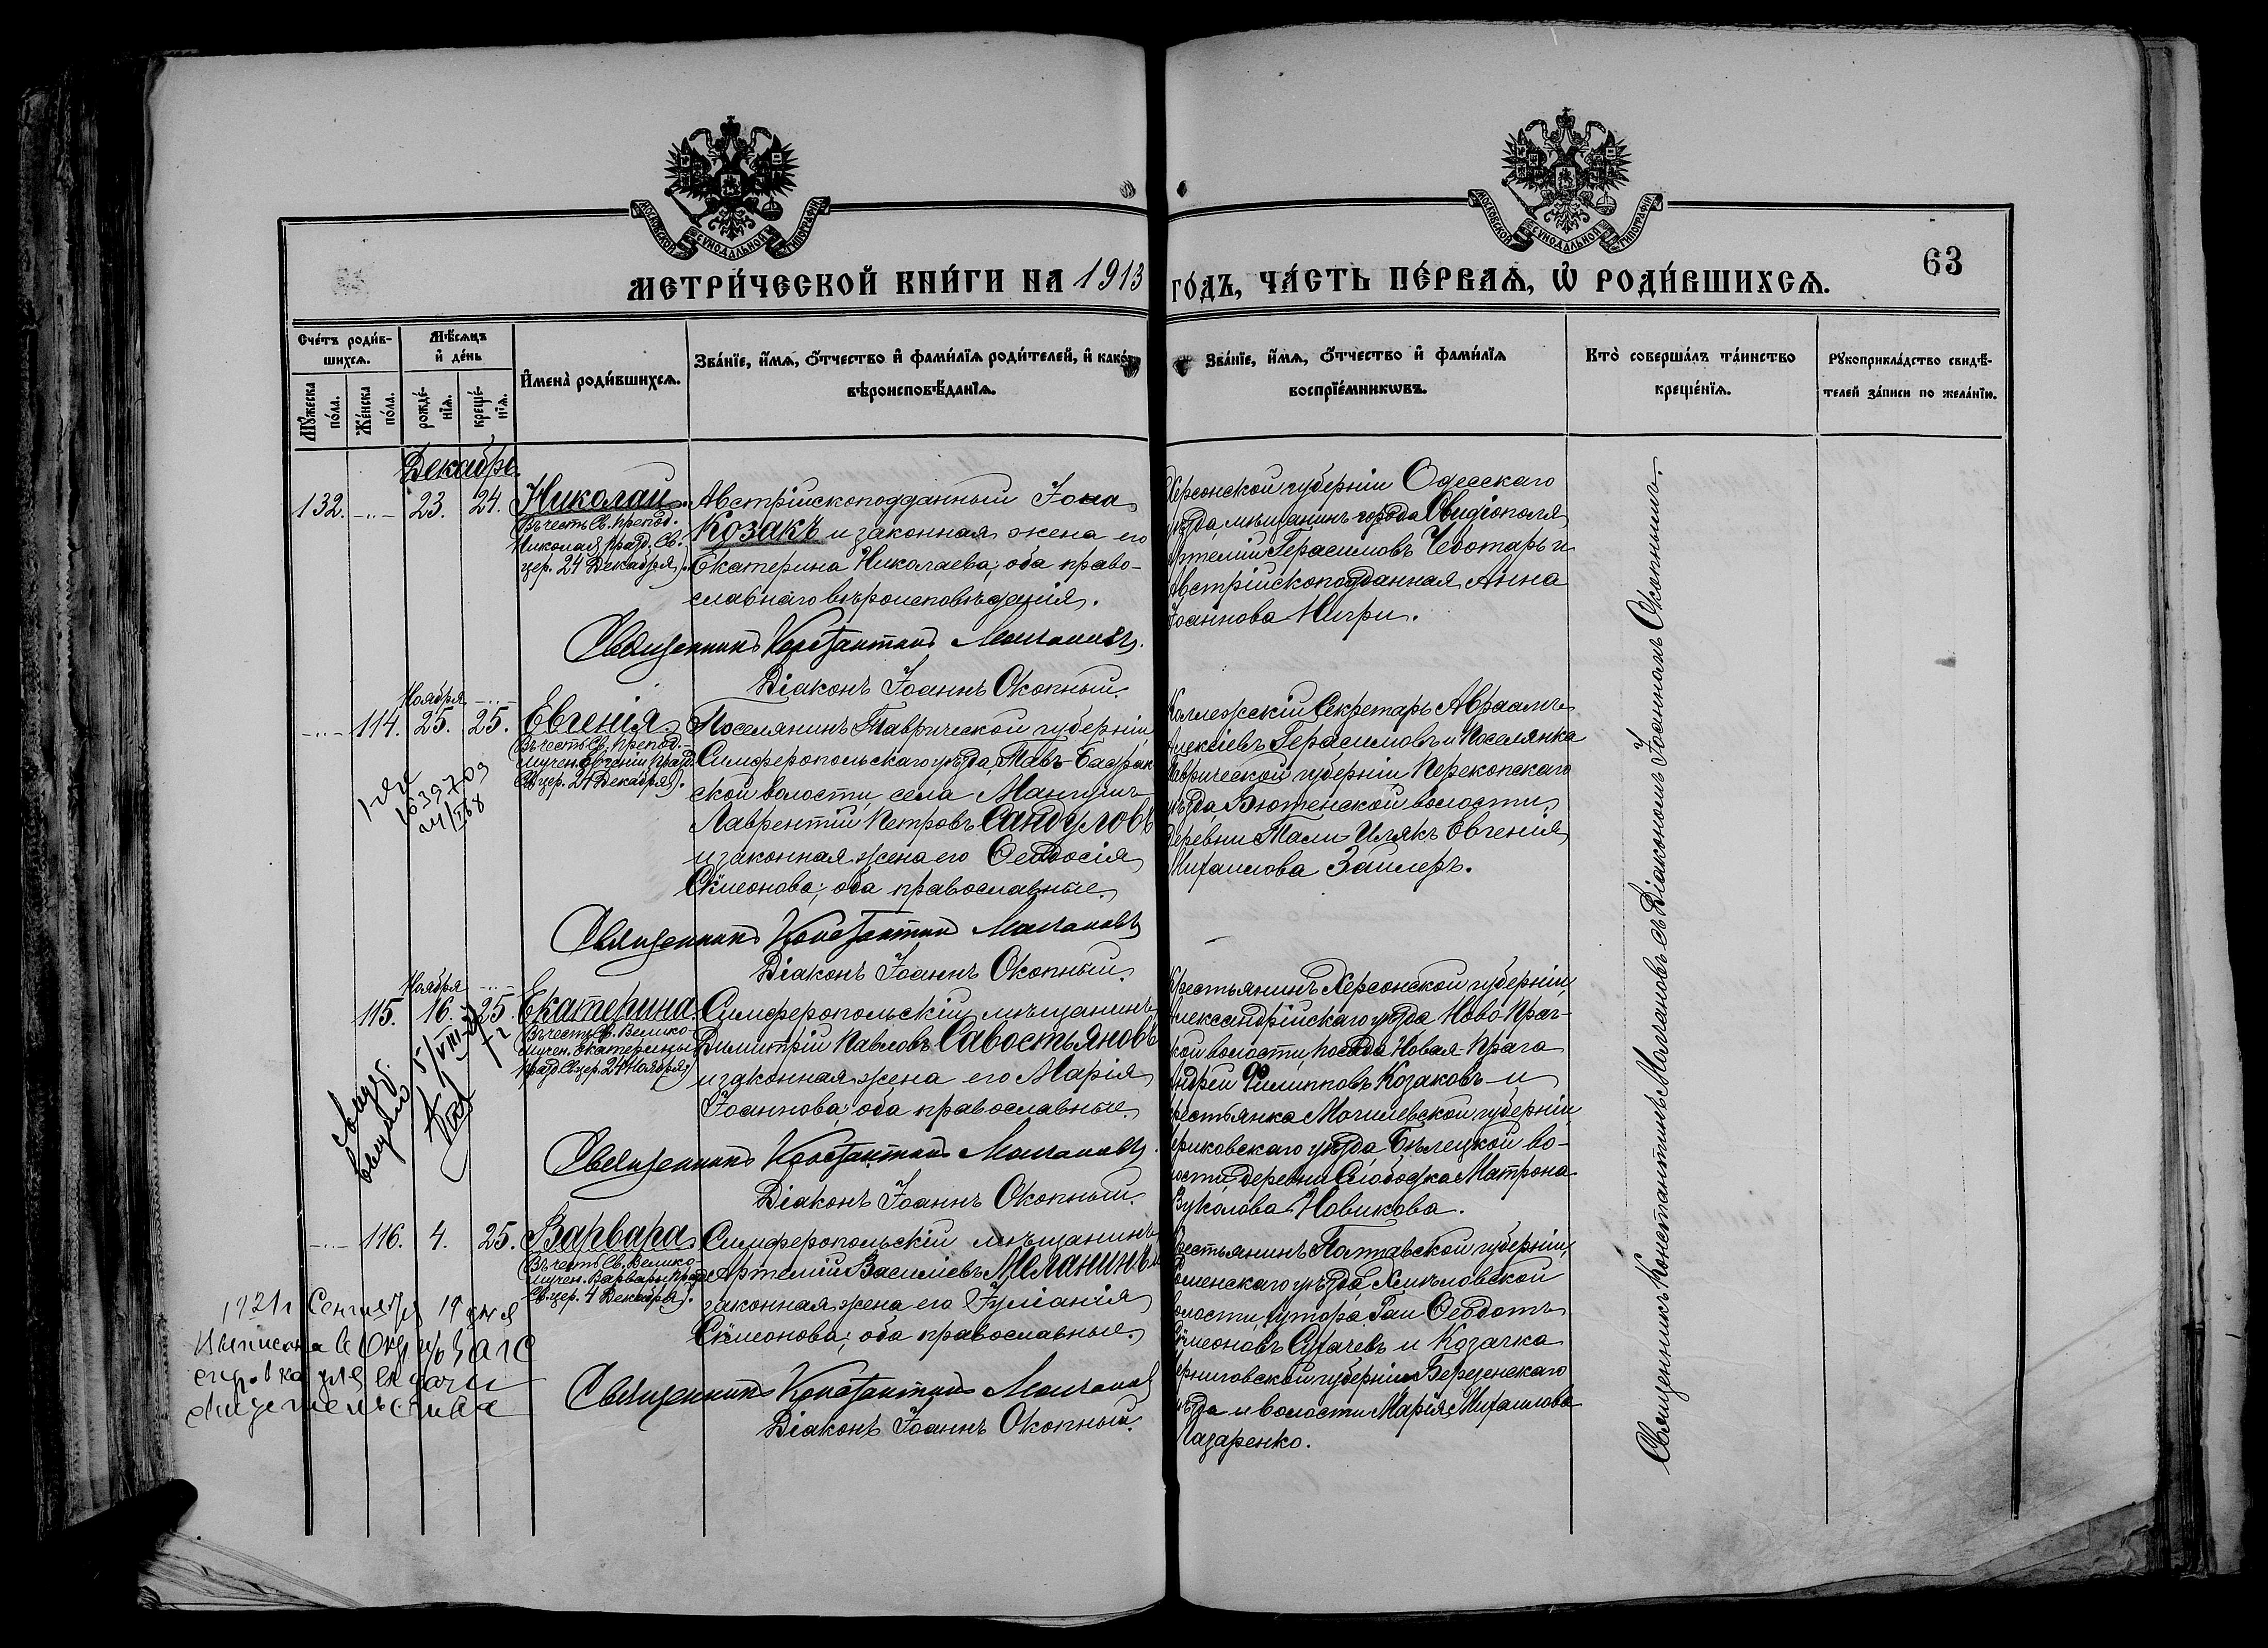 МОСКОВСКОЙ СУНОДАЛЬНОЙ ТИПОГРАФІИ
МОСКОВСКОЙ СУНОДАЛЬНОЙ ТИПОГРАФІИ
63
МЕТРИ́ЧЕСКОЙ КНИ́ГИ НА 1913 ГО́ДЪ, ЧА́СТЬ ПЕ́РВАѦ, Ѡ҆ РОДИ́ВШИХСѦ.
Сче́тъ роди́в-
шихсѧ.
Мѣ́сѧцъ
и҆ де́нь
И҆мена̀ роди́вшихсѧ.
Зва́нїе, и҆́мѧ, ѻ҆́тчество и҆ фами́лїѧ роди́телей, и҆ како́гѡ
вѣроисповѣ́данїѧ.
Зва́нїе, и҆́мѧ, ѻ҆́тчество и҆ фами́лїѧ
воспрїе́мникѡвъ.
Кто̀ соверша́лъ та́инство
креще́нїѧ.
Рꙋкоприкла́дство свидѣ́-
телей за́писи по жела́нїю.
Мꙋ́жеска
по́ла.
Же́нска
по́ла.
рожде́-
нїѧ.
креще́-
нїѧ.
Декабрь.
132. -..- 23. 24. Николай.
Въ честь Св. препод.
Николая (празд. Св.
цер. 24 Декабря).
Австрійскоподданный Іона
Козакъ и законная жена его
Екатерина Николаева; оба право-
славнаго вѣроисповѣданія.
Священникъ Константинъ Молчановъ.
Діаконъ Іоаннъ Окопный.
Херсонской губерніи Одесскаго
уѣзда, мѣщанинъ города Овидіополя
Артемій Герасимовъ Чеботарь и
Австрійскоподданная Анна
Іоаннова Нигри.
Ноября -..-
-..- 114. 25. 25. Евгенія.
Въ честь Св. препод.-
мучен. Евгеніи (празд.
Св. цер. 24 Декабря).
Поселянинъ Таврической губерніи
Симферопольскаго уѣзда, Тавъ-Бадрак
ской волости, села Мангушъ
Лаврентій Петровъ Сандуловъ
и законная жена его Ѳеодосія
Сѵмеонова; оба православные.
Священникъ Константинъ Молчановъ
Діаконъ Іоаннъ Окопный.
1639709
Коллежскій Секретарь Авраамъ
Алексіевъ Герасимовъ и поселянка
Таврической губерніи Перекопскаго
уѣзда, Бютенской волости,
деревни Тали-Илякъ Евгенія
Михаилова Зайлеръ.
Ноября -..-
115. 16. 25. Екатерина
Въ честь Св. Велико-
мучен. Екатерины
(празд. Св. цер. 24 Ноября)
Симферопольскій мѣщанинъ
Димитрій Павловъ Савостьяновъ
и законная жена его Марія
Іоаннова; оба православные.
Священникъ Константинъ Молчановъ.
Діаконъ Іоаннъ Окопный.
Крестьянинъ Херсонской губерніи,
Александрійскаго уѣзда Ново-Праг-
ской волости, посада Новая-Прага
Андрей Филипповъ Козаковъ и
крестьянка Могилевской губерніи,
Чериковскаго уѣзда, Бѣлецкой во-
лости, деревни Слободка Матрона
Вуколова Новикова.
-..- 116. 4. 25. Варвара
Въ честь Св. Велико-
мучен. Варвары (празд.
Св. цер. 4 Декабря).
Симферопольскій мѣщанинъ
Артемій Василіевъ Меланинъ и
законная жена его Іуліанія
Сѵмеонова; оба православные.
Священникъ Константинъ Молчановъ
Діаконъ Іоаннъ Окопный.
Крестьянинъ Полтавской губерніи,
Роменскаго уѣзда, Хмѣловской
волости, хутора Гаи Ѳеодотъ
Сѵмеоновъ Сугачевъ и Козачка
Черниговской губерніи Березенскаго
уѣзда и волости Марія Михаилова
Назаренко.
Священникъ Константинъ Молчановъ съ Діакономъ Іоанномъ Окопнымъ.